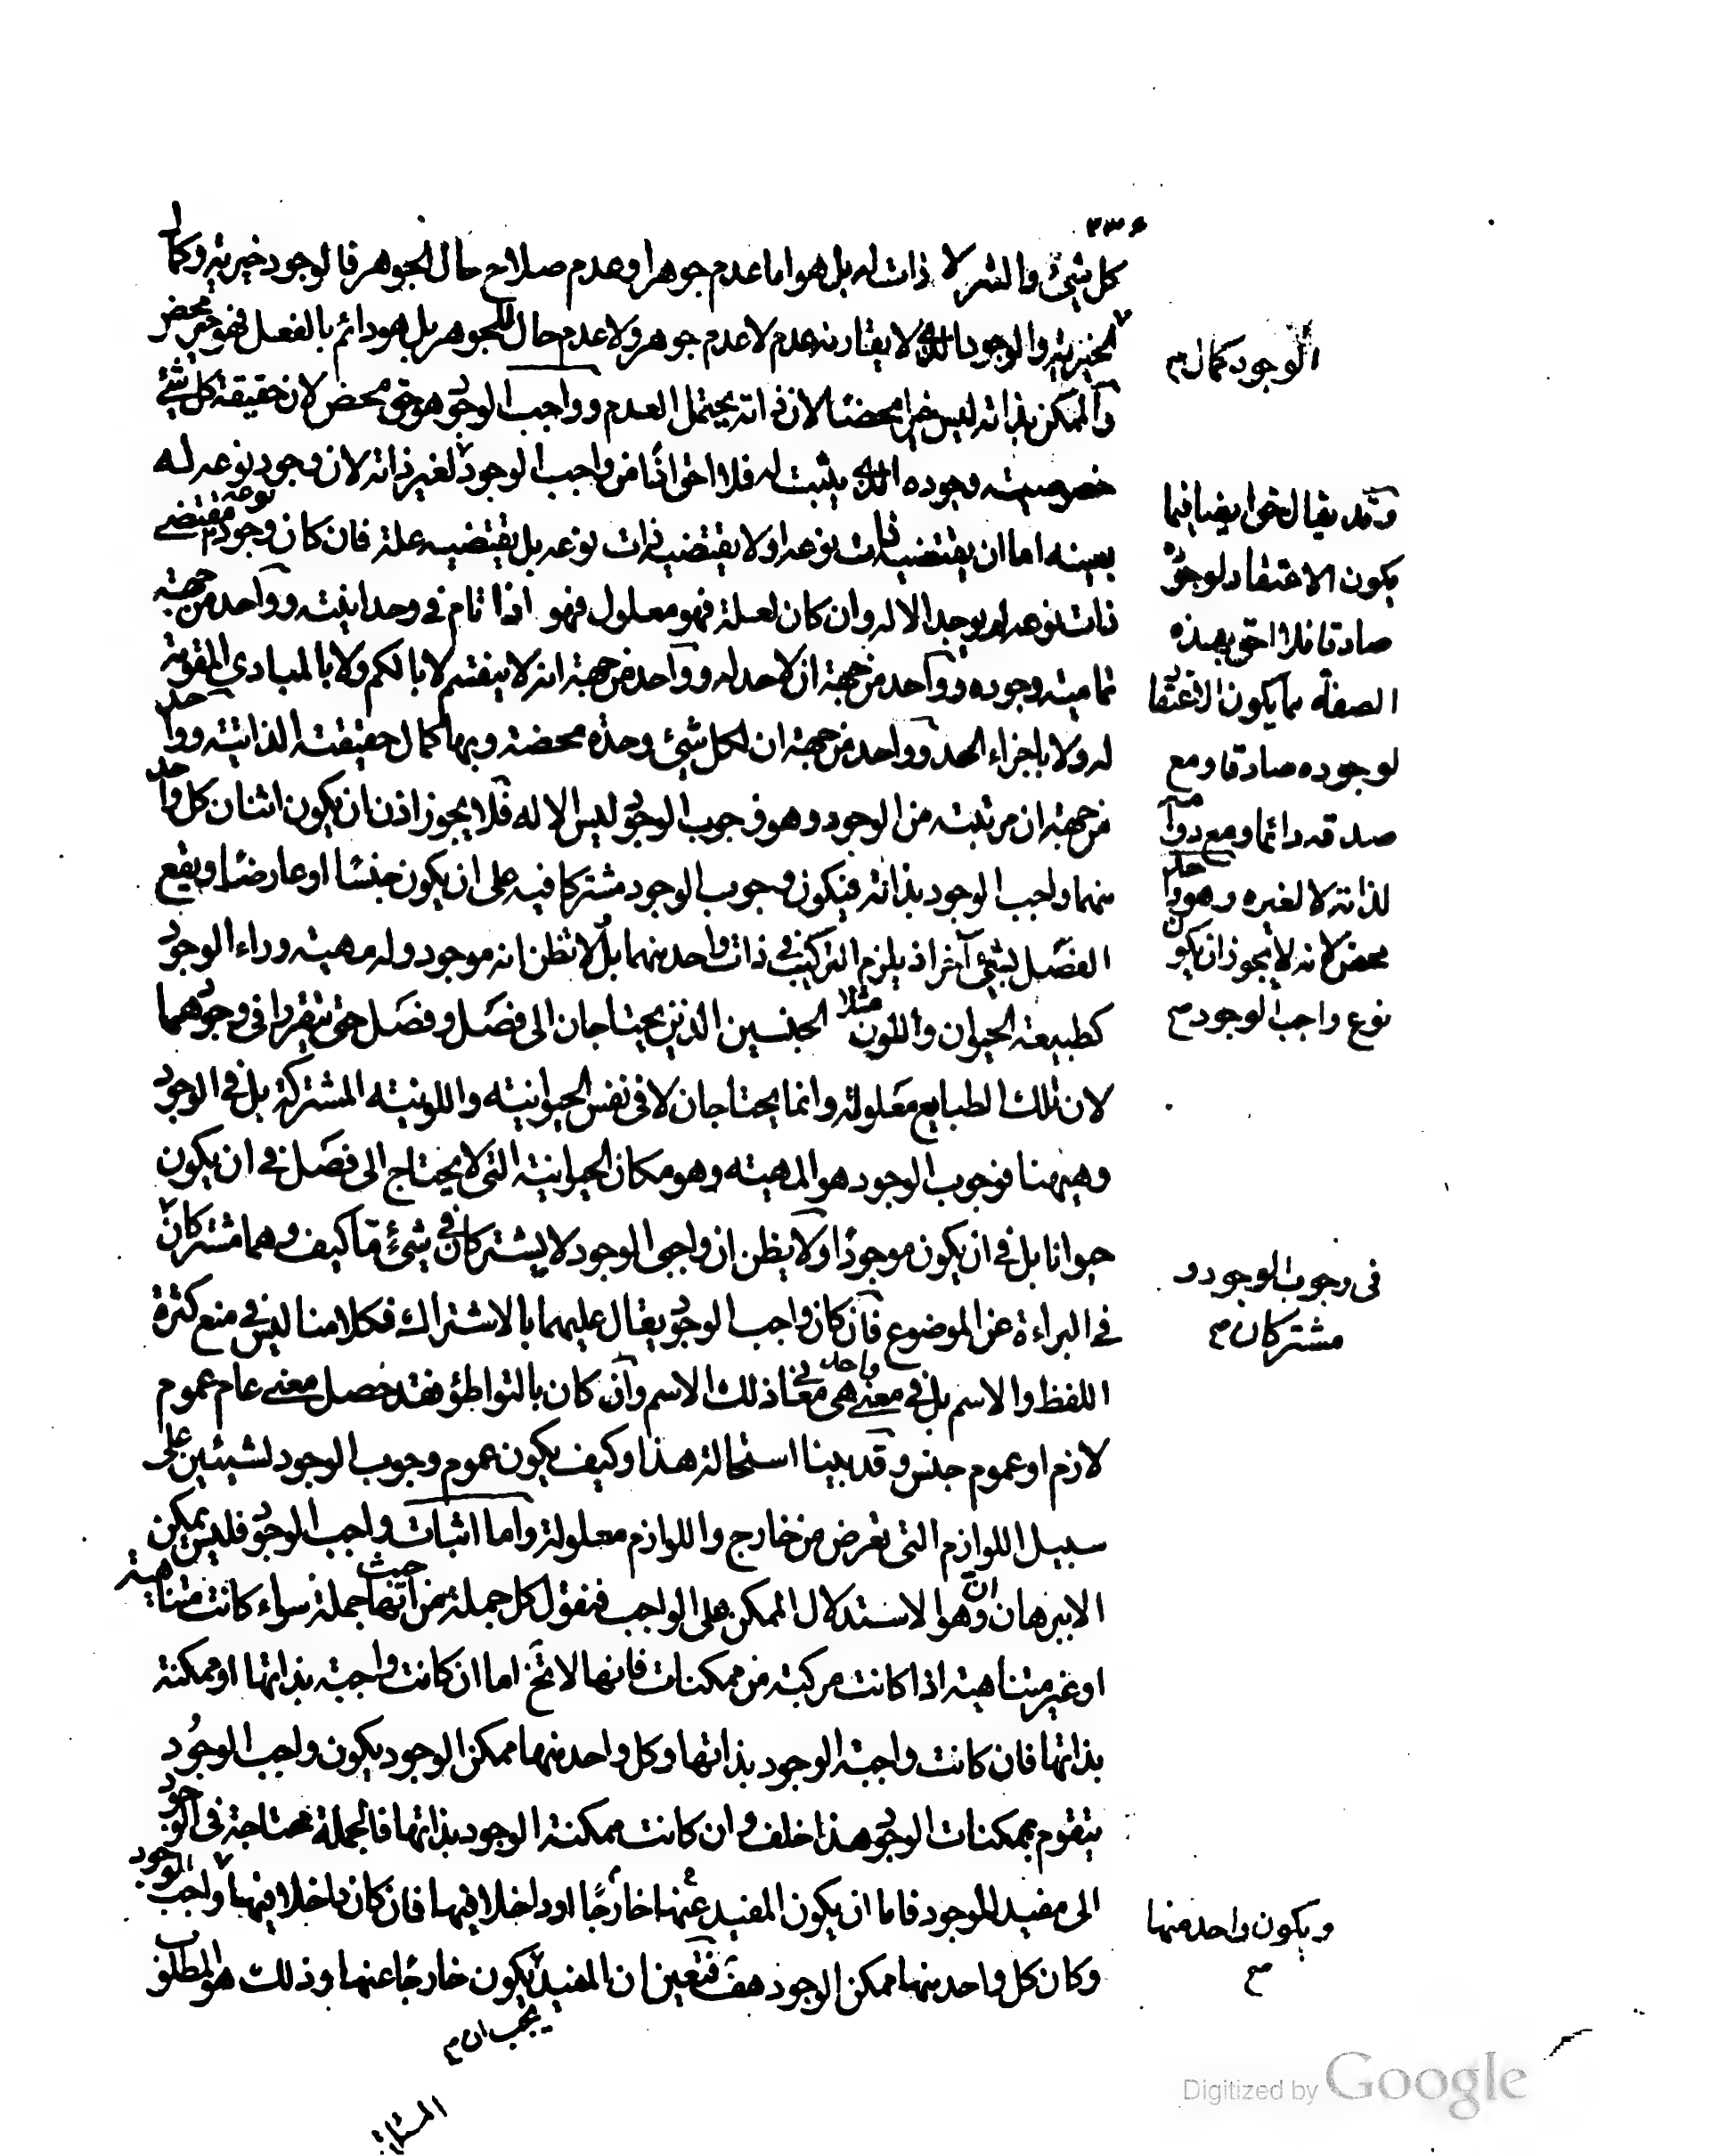 ٣٣٤
كل شيئ والشر لا ذات له بل هو اما عدم جوهر او عدم صلاح حال الجوهر فالوجود خيرية وكمال
الخيرية والوجود الذى لا يقارنه عدم لا عدم جوهر ولا عدم حال للجوهر بل هو دائم بالفعل فهو خير محض
والممكن بذاته ليس خيرا محضا لان ذاته يحتمل العدم وواجب الوجود هو حق محض لان حقيقة كل شيئ
خصوصية وجوده الذى يثبت له فلا احق اذا من واجب الوجود لغير ذاته لان وجود نوعه له
بعينه اما ان يقتضيه ذات نوعه او لا يقتضيه ذات نوعه بل يقتضيه علة فان كان وجود نوعه مقتضى
ذات نوعه لم يوجد الا له وان كان لعلة فهو معلول فهو اذا تام فى وحدانيته وواحد من جهة
تمامية وجوده وواحد من جهة ان لا حد له وواحد من جهة انه لا ينقسم لا بالكم ولا بالمبادى المقومة
له ولا باجزاء الحد وواحد من جهة ان لكل شيئ وحدة محضة وبها كمال حقيقته الذاتية وواحد
من جهة ان مرتبته من الوجود وهو وجوب الوجود ليس الا له فلا يجوز اذن ان يكون اثنان كل واحد
منهما واجب الوجود بذاته فيكون وجوب الوجود مشتركا فيه على ان يكون جنسا او عارضا ويقع
الفصل بشيئ آخر اذ يلزم التركيب فى ذات واحد منهما بل لا تظن انه موجود وله مهية وراء الوجود
كطبيعة الحيوان واللون مثلا الجنسين الذين يحتاجان الى فصل وفصل حتى يتقررا فى وجودهما
لان تلك الطبايع معلولة وانما يحتاجان لا فى نفس الحيوانية واللونية المشتركة بل فى الوجود
وهيهنا فوجوب الوجود هو المهية وهو مكان الحيوانية التى لا يحتاج الى فصل فى ان يكون
حيوانا بل فى ان يكون موجودا ولا يظن ان واجبى الوجود لا يشتركان فى شيئ ما كيف وهما مشتركان
فى البراءة عن الموضوع فان كان واجب الوجود يقال عليهما بالاشتراك فكلامنا ليس فى منع كثرة
اللفظ والاسم بل فى معنى واحد من معانى ذلك الاسم وان كان بالتواطؤ فقد حصل معنى عام عموم
لازم او عموم جنس وقد بينا استحالة هذا وكيف يكون عموم وجوب الوجود لشيئين على
سبيل اللوازم التى تعرض من خارج واللوازم معلولة واما اثبات واجب الوجود فليس يمكن
الا ببرهان ان وهو الاستدلال الممكن على الواجب فنقول كل جملة من حيث انها جملة سواء كانت متناهية
او غير متناهية اذا كانت مركبة من ممكنات فانها لا تخ اما ان كانت واجبة بذاتها او ممكنة
بذاتها فان كانت واجبة الوجود بذاتها وكل واحد منها ممكن الوجود يكون واجب الوجود
يتقوم بممكنات الوجود هذا خلف وان كانت ممكنة الوجود بذاتها فالجملة محتاجة فى الوجود
الى مفيد للوجود فاما ان يكون المفيد عنها خارجا او داخلا فيها فان كان داخلا فيها واجب الوجود
وكان كل واحد منها ممكن الوجود هف فتعين ان المفيد يكون خارجا عنها وذلك هو المطلوب
يجب ان م
الوجود كمال م
وقد يقال حق ايضا فيما
يكون الاعتقاد لوجوده
صادقا فلا احق بهذه
الصفة مما يكون الاعتقاد
لوجوده صادقا ومع
صدقه دائما ومع دوامه
لذاته لا لغيره وهو واحد
محض لانه لا يجوز ان يكون
نوع واجب الوجود م
فى وجوب الوجود و
مشتركان م
ويكون واحد منها
م
Digitized by Google